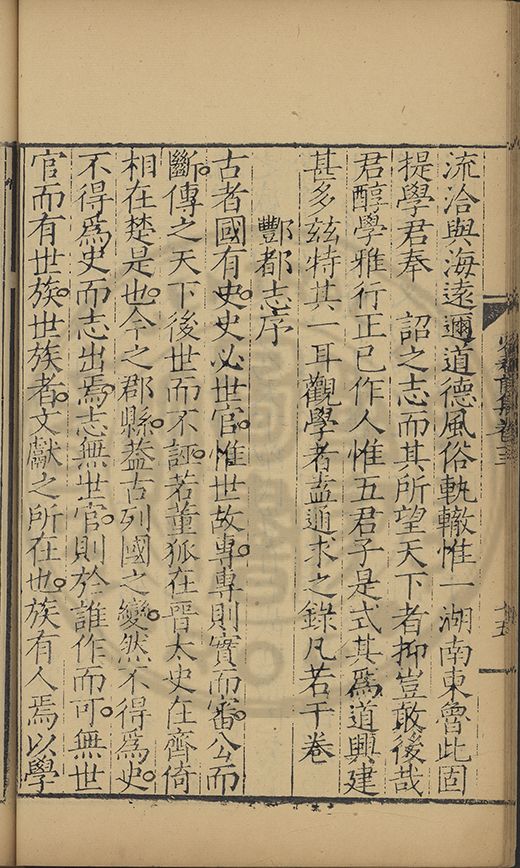 流洽與海遠邇道德風俗執轍惟一湖南東魯此固
提學君奉　詔之志而其所望天下者抑豈敢後哉
君醇學雅行正已作人惟五君子是式其爲道興建
甚多兹特其一耳觀學者盍遍求之錄凡若干卷
酆都志序
古者國有史史必世官惟世故專專則實而審公而
斷傳之天下後世而不誣若董狐在晉太史在齊倚
相在楚是也今之郡縣葢古列國之變然不得爲史
不得爲史而志出焉志無世官則於誰作而可無世
官而有世族世族者文獻之所在也族有人焉以學
卷三
十五